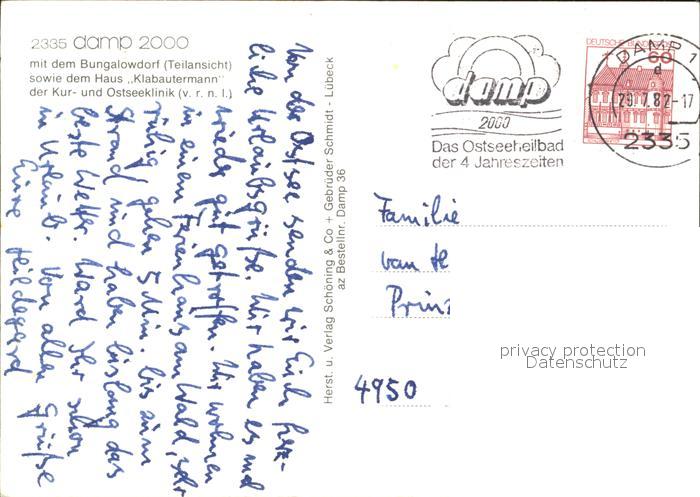 2335 damp 2000
mit dem Bungalowdorf (Teilansicht)
sowie dem Haus „Klabautermann“
der Kur- und Ostseeklinik (v. r. n. l.)
Von der Ostsee senden wir Euch herz-
liche Urlaubsgrüße. Wir haben es mal
wieder gut getroffen. Wir wohnen
in einem Ferienhaus am Wald, sehr
ruhig, gehen 5 Min. bis zum
Strand und haben bislang das
beste Wetter. Ward Ihr schon
in Urlaub. Von allen Grüße
Eure Hildegard
Herst. u. Verlag Schöning & Co + Gebrüder Schmidt - Lübeck
az Bestellnr. Damp 36
damp
2000
Das Ostseeheilbad
der 4 Jahreszeiten
DEUTSCHE BUNDESPOST
60
DAMP 1
d
29.7.82-17
2335
Familie
van te
Prinz
4950
privacy protection
Datenschutz